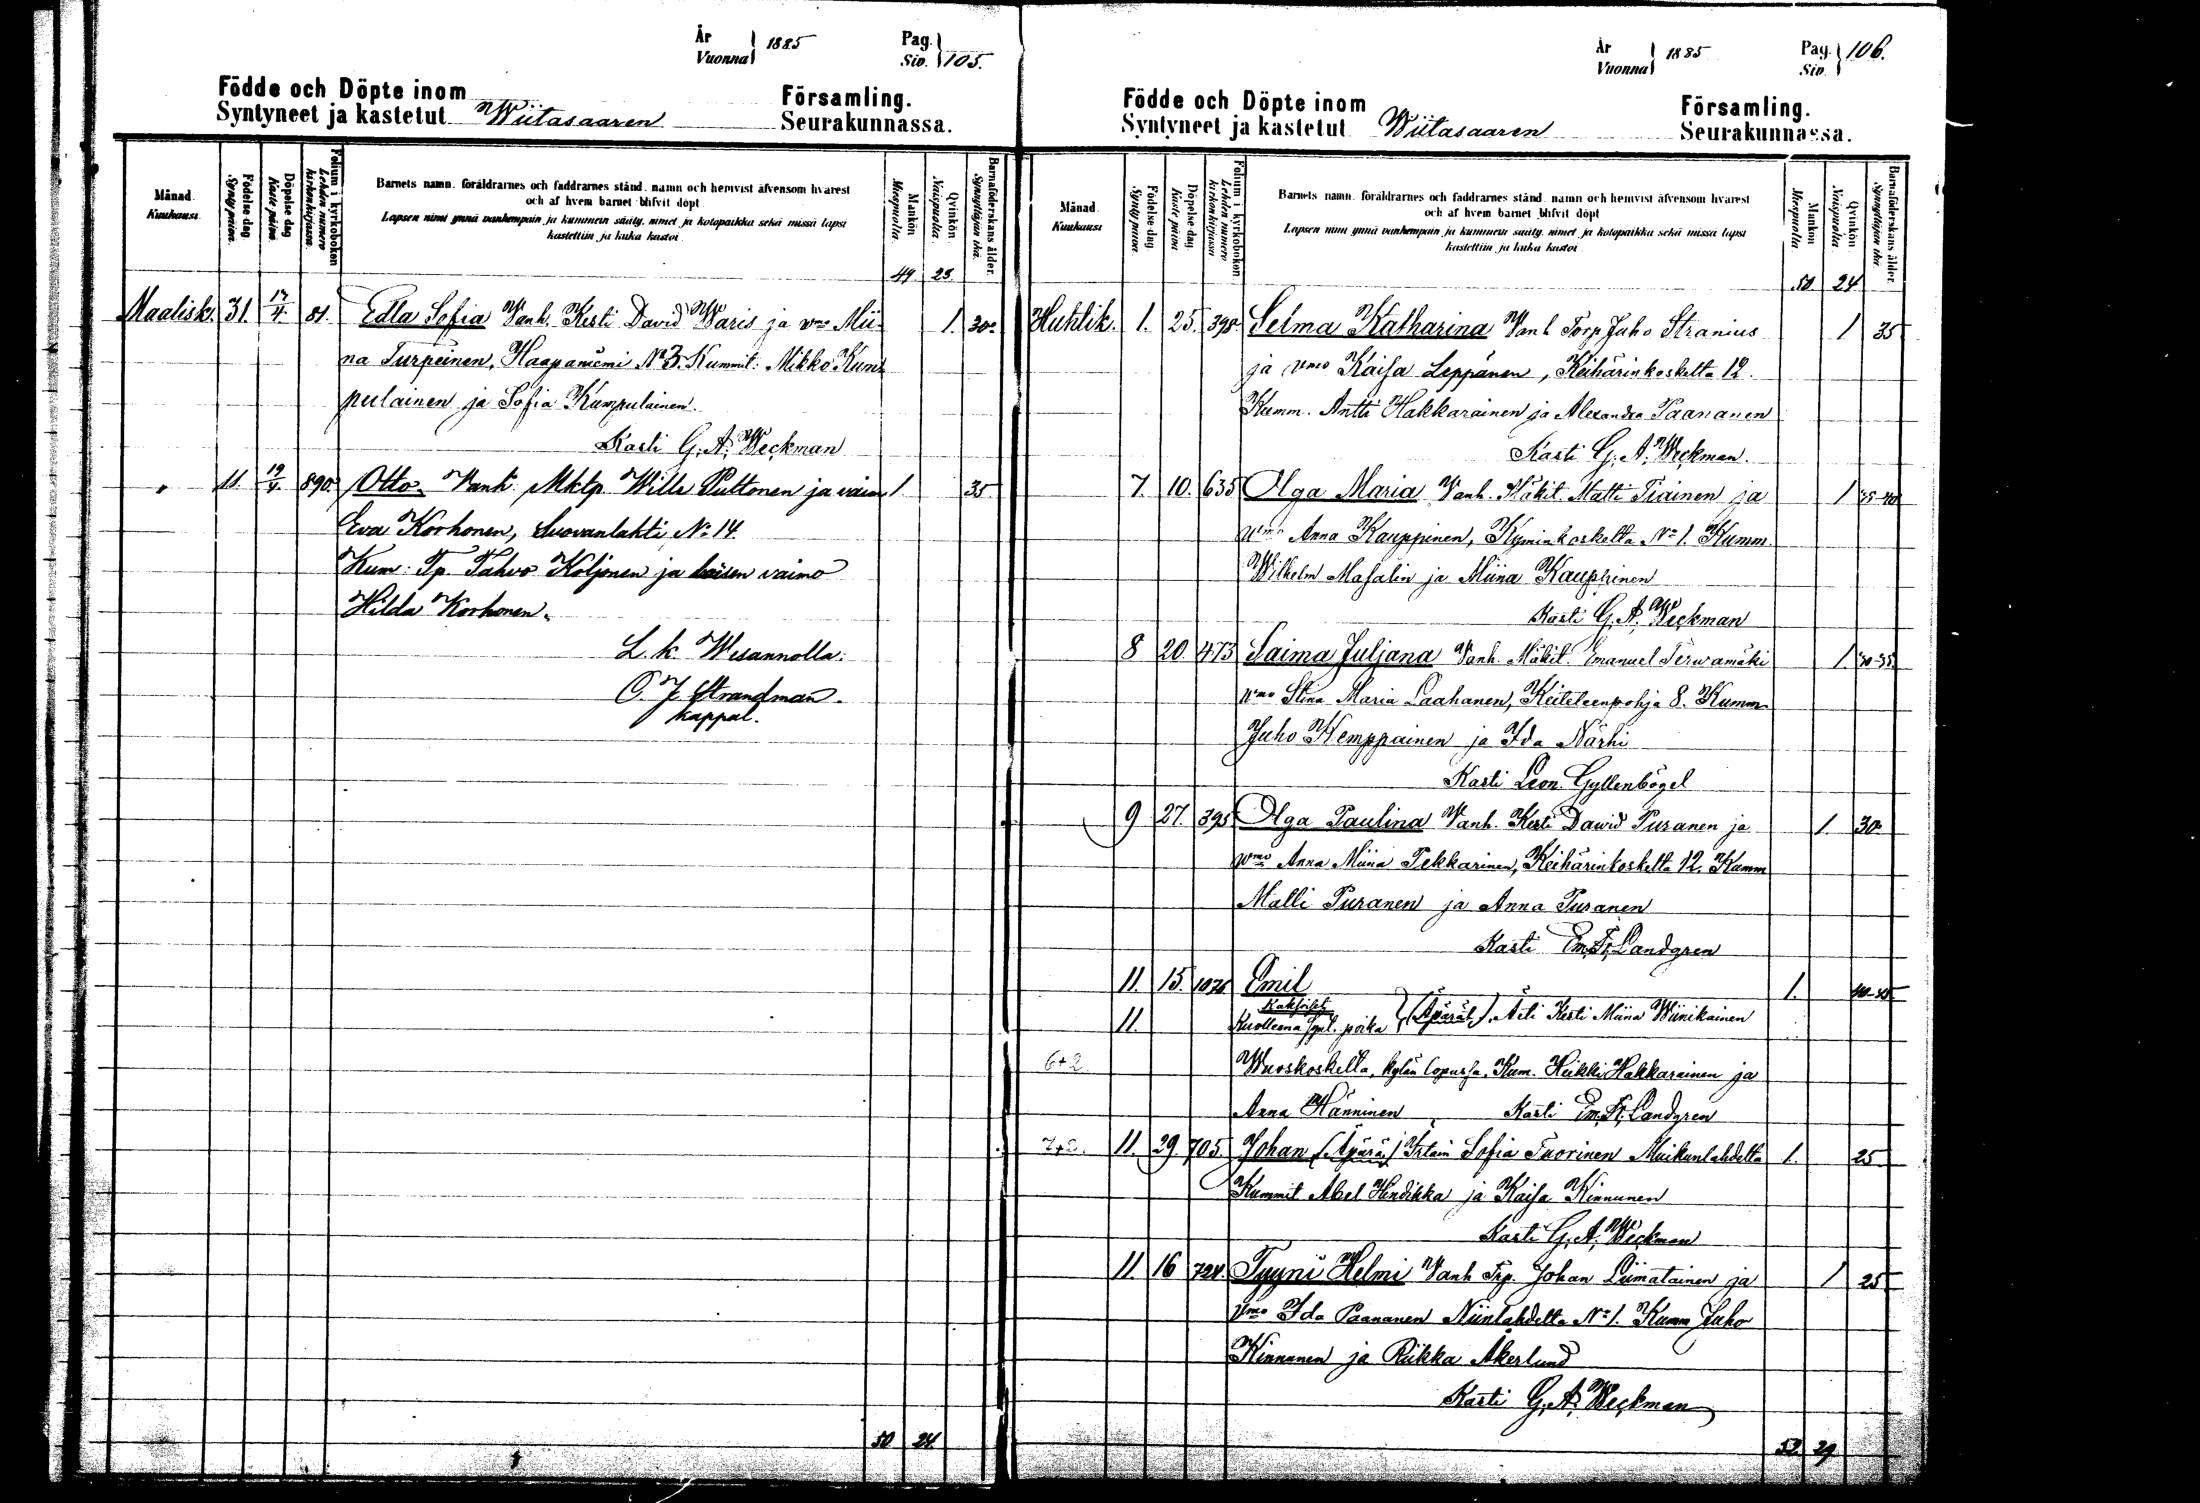 År
Vuonna 1885
Pag.
Siv. 105.
Födde och Döpte inom
Syntyneet ja kastetut Wiitasaaren
Församling.
Seurakunnassa.
Månad
Kuukausi
Födelse dag
Synty päivä.
Döpelse dag
Kaste päivä
Folium i kyrkoboken
Lehden numero kirkonkirjassa.
Barnets namn. föräldrarnes och faddrarnes stånd. namn och hemvist äfvensom hvarest
och af hvem barnet blifvit döpt
Lapsen nimi ynnä vanhempain ja kummein sääty. nimet ja kotopaikka sekä missä lapsi
kastettiin ja kuka kastoi
Mankön
Miespuolta.
Qvinkön
Naispuolta.
Barnaföderskans ålder.
Synnyttäjän ikä.
49 23.
Maalisk. 31. 17/4. 81. Edla Sofia Vanh. Kesti David Waris ja vmo Mii- 1. 30.
na Turpeinen, Haapaniemi No 3. Kummit: Mikko Kum
pulainen ja Sofia Kumpulainen.
Kasti G. A. Weckman
" 11. 19/4. 890. Otto. Vanh. Mktp. Wille Puttonen ja vaim 1. 35
Eva Korhonen, Suovanlahti No 14.
Kum: Tp. Tahvo Koljonen ja hänen vaimo
Hilda Korhonen.
L. k. Wesannolla.
O. J. Strandman.
kappal.
50 24.
År
Vuonna 1885
Pag.
Siv. 106.
Födde och Döpte inom
Syntyneet ja kastetut Wiitasaaren
Församling.
Seurakunnassa.
Månad
Kuukausi
Födelse dag
Synty päivä
Döpelse dag
Kaste päivä
Folium i kyrkoboken
Lehden numero kirkonkirjassa
Barnets namn. föräldrarnes och faddrarnes stånd. namn och hemvist äfvensom hvarest
och af hvem barnet blifvit döpt
Lapsen nimi ynnä vanhempain ja kummein sääty. nimet ja kotopaikka sekä missä lapsi
kastettiin ja kuka kastoi
Mankön
Miespuolta.
Qvinkön
Naispuolta.
Barnaföderskans ålder.
Synnyttäjän ikä
50 24
Huhtik. 1. 25. 398. Selma Katharina Vanh Torp Juho Stranius 1 35
ja vmo Kaisa Leppänen, Keihärinkoskelta 12.
Kumm. Antti Hakkarainen ja Alexandra Paananen
Kasti G. A. Weckman.
7. 10. 635 Olga Maria Vanh. Mäkit. Matti Tiainen ja 1 35-40
vmo Anna Kauppinen, Kyminkoskelta No 1. Kumm.
Wilhelm Masalin ja Miina Kauppinen
Kasti G. A. Weckman
8 20. 473 Saima Juljana Vanh. Mäkit. Emanuel Terwamäki 1 30-35.
vmo Stina Maria Laahanen, Keiteleenpohja 8. Kumm
Juho Kemppainen ja Ida Närhi
Kasti Leon. Gyllenbögel
9 27. 395 Olga Paulina Vanh. Kesti Dawid Puranen ja 1. 30
vmo Anna Miina Pekkarinen, Keihärinkoskelta 12. Kumm
Matti Puranen ja Anna Puranen
Kasti Em. Fr. Landgren
11. 15. Emil 1. 40-45.
Kaksoiset
11. Kuolleena synt. poika (Äpärät). Äiti Kesti Miina Wiinikainen
6+2 Wuoskoskella, kylän lopussa. Kum. Heikki Hakkarainen ja
Anna Hänninen Kasti Em. Fr. Landgren
11. 29. 705. Johan (Äpärä) Itlain Sofia Tuorinen Muikunlahdelta 1. 25
Kummit Abel Hindikka ja Kaisa Kinnunen
Kasti G. A. Weckman
11. 16 724. Tyyni Helmi Vanh Trp. Johan Liimatainen ja 1 25
vmo Ida Paananen Niinlahdelta No 1. Kumm Juho
Kinnunen ja Riikka Åkerlund
Kasti G. A. Weckman
52 29